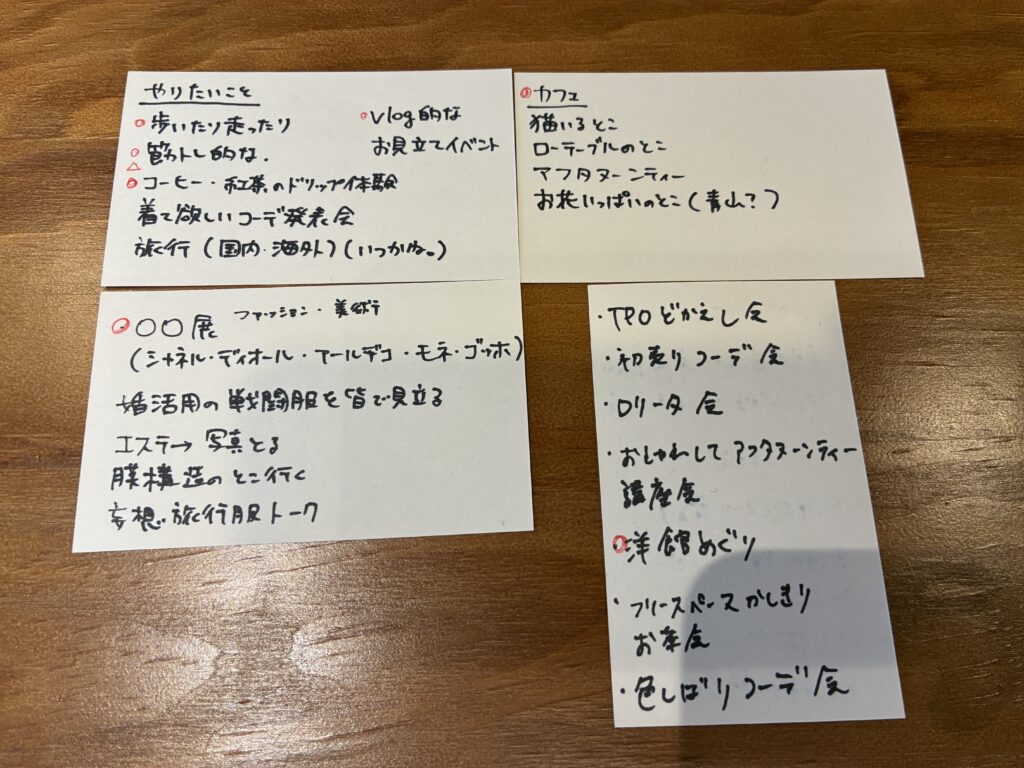 やりたいこと
歩いたり走ったり
筋トレ的な.
コーヒー・紅葉のドリップ体験
着て欲しいコーデ発表会
旅行(国内・海外)(いつかね。)
Vlog的な
お見立てイベント
カフェ
猫いるとこ
ローテーブルのとこ
アフタヌーンティー
お花いっぱいのとこ(青山?)
〇〇展 ファッション・美術
(シャネル・ディオール・アールデコ・モネ・ゴッホ)
婚活用の戦闘服を皆で見立る
エステ→写真とる
膜構造のとこ行く
妄想旅行服トーク
・TPOどがえし会
・初売りコーデ会
・ロリータ会
・おしゃれしてアフタヌーンティー
講座会
・洋館めぐり
・フリースペースかしきり
お茶会
・色しばりコーデ会